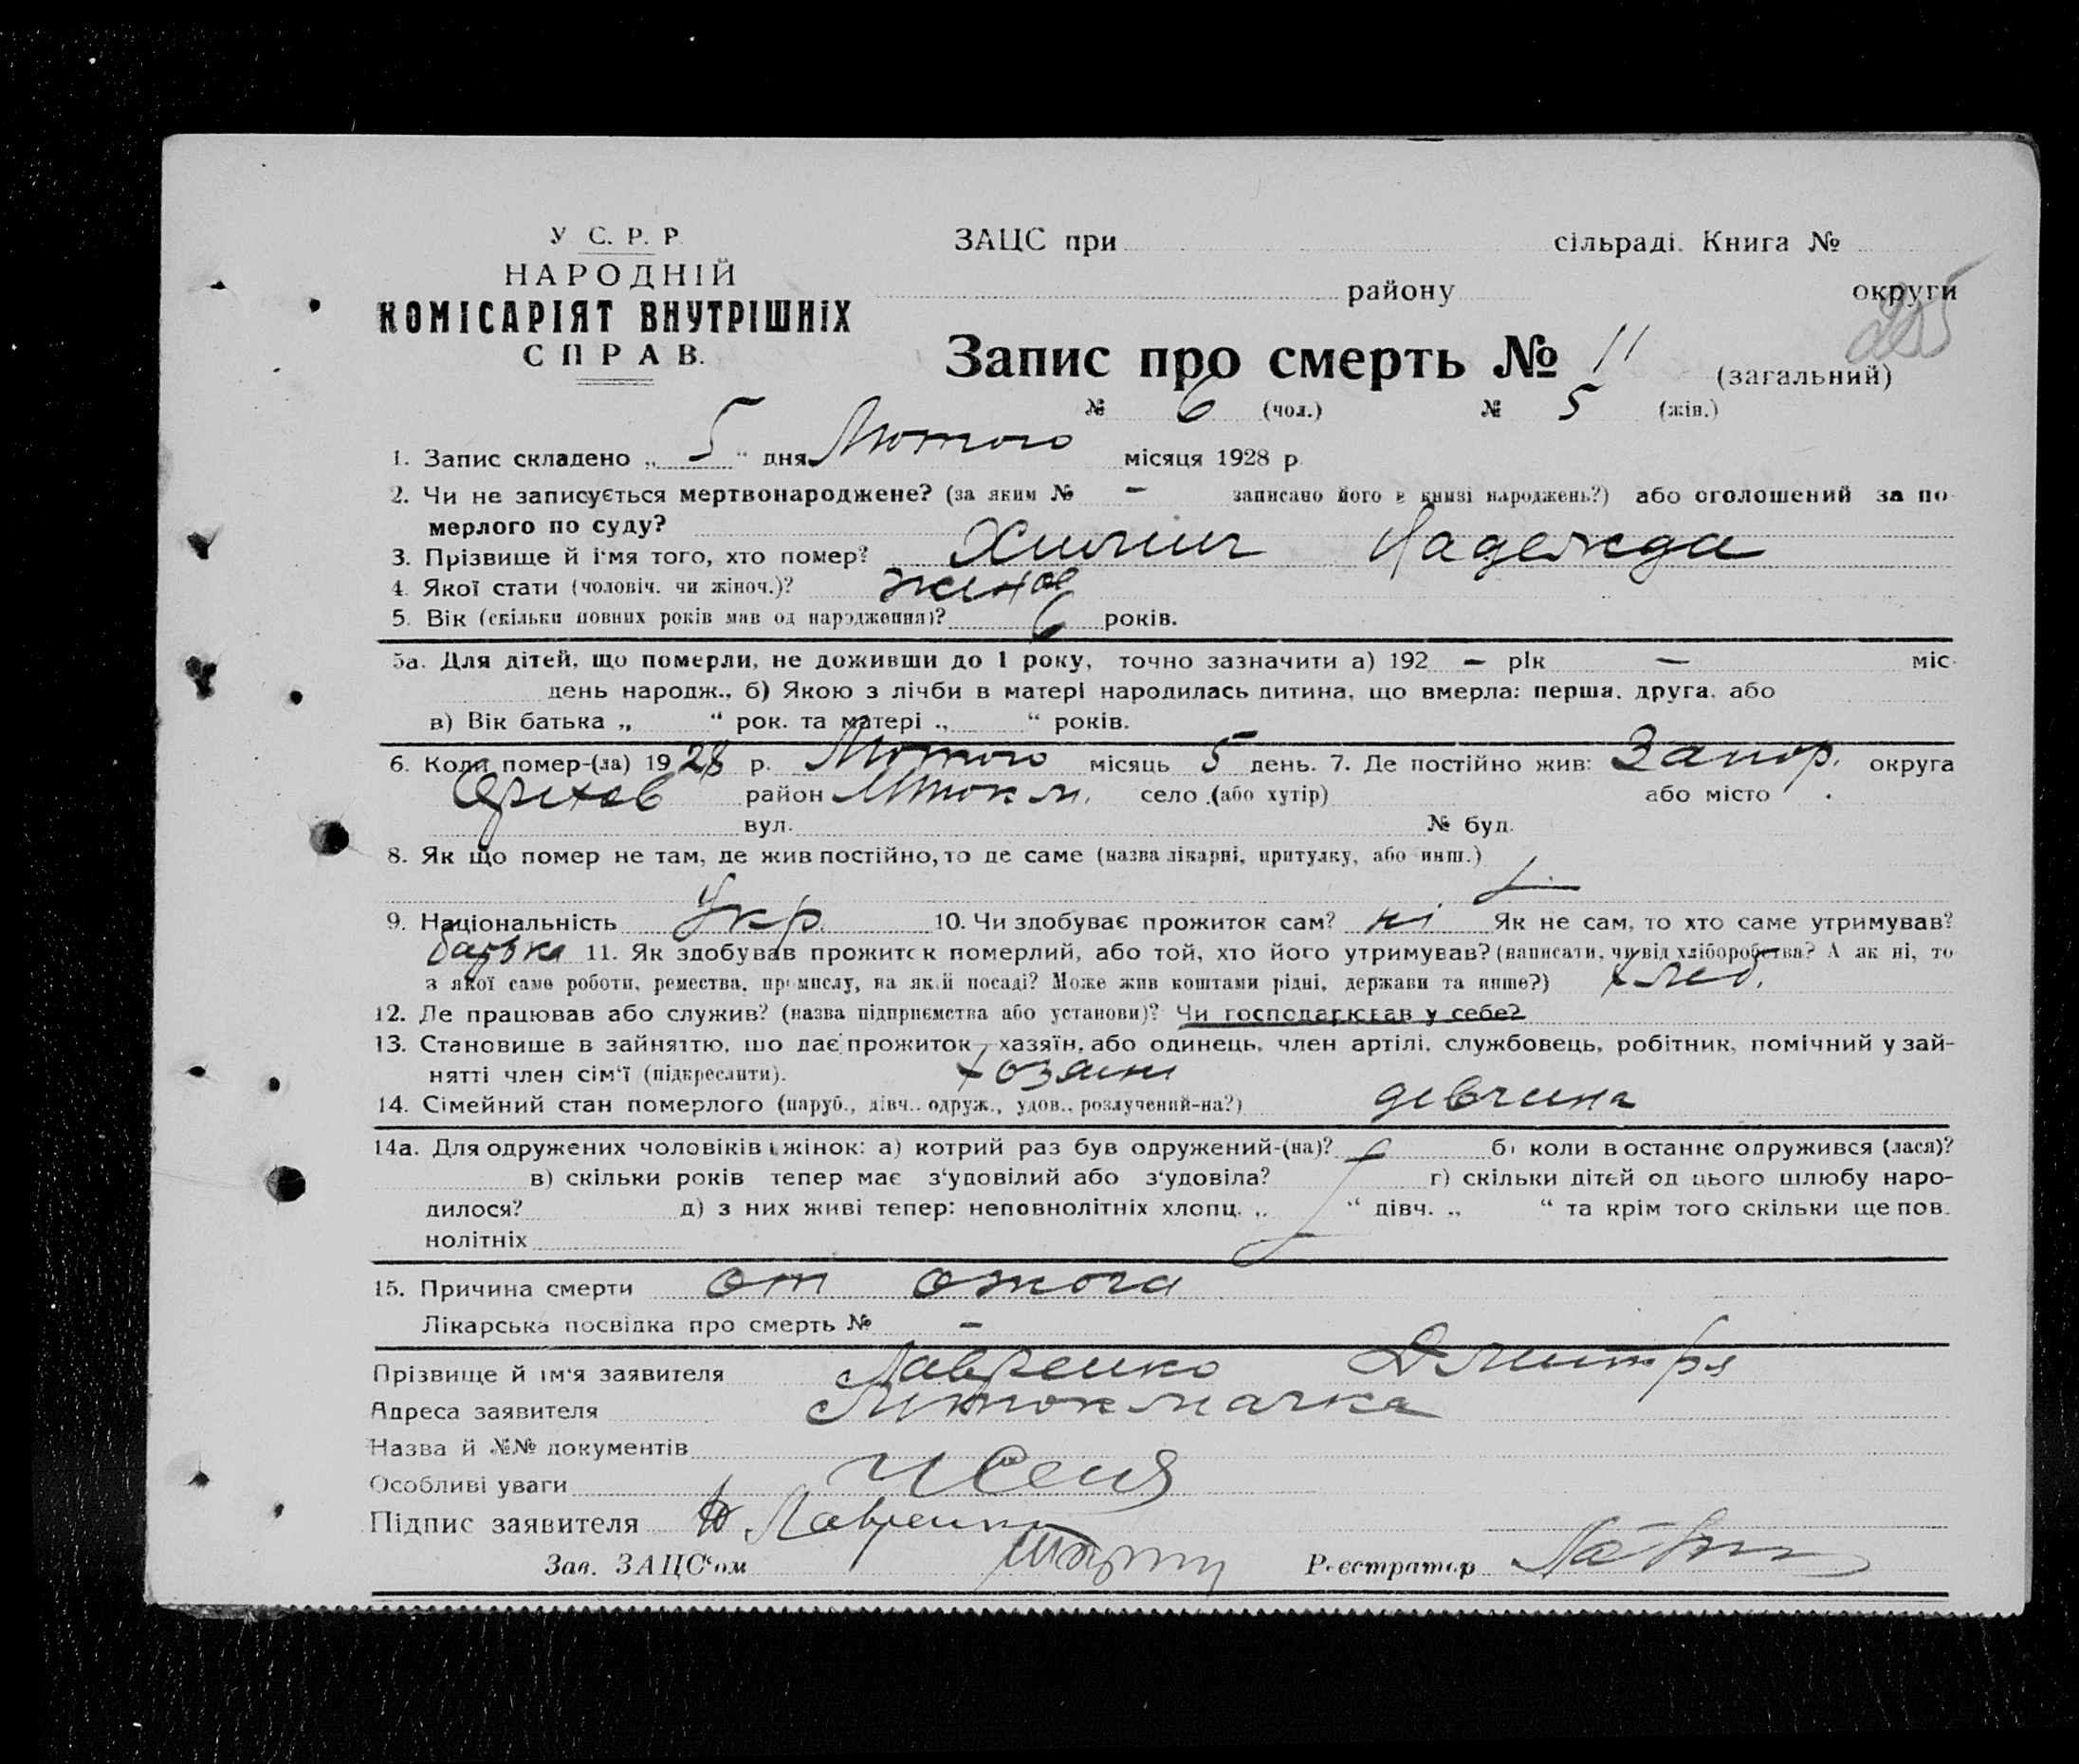 У С. Р. Р.
НАРОДНІЙ
КОМІСАРІЯТ ВНУТРІШНіХ
СПРАВ.
ЗАЦС при сільраді. Книга №
району округи
Запис про смерть № 11 (загальний)
№ 6 (чол.) № 5 (жін.)
1. Запис складено „ 5 “ дня Лютого місяця 1928 р.
2. Чи не записується мертвонароджене? (за яким № – записано його в книзі народжень?) або оголошений за по-
мерлого по суду?
3. Прізвище й ім'я того, хто помер? Надежда
4. Якої стати (чоловіч. чи жіноч.)? жіноч
5. Вік (скільки повних років мав од народження)? 6 років.
5а. Для дітей, що померли, не доживши до 1 року, точно зазначити а) 192 – рік – міс.
день народж., б) Якою з лічби в матері народилась дитина, що вмерла: перша, друга, або
в) Вік батька „ “ рок. та матері „ “ років.
6. Коли помер-(ла) 1928 р. Лютого місяць 5 день. 7. Де постійно жив: Запор. округа
Оріхов район Мтокм. село (або хутір) або місто
вул. № буд.
8. Як що помер не там, де жив постійно, то де саме (назва лікарні, притулку, або инш.)
9. Національність Укр. 10. Чи здобуває прожиток сам? ні Як не сам, то хто саме утримував?
батько 11. Як здобував прожиток померлий, або той, хто його утримував? (написати, чи від хліборобства? А як ні, то
з якої саме роботи, ремества, промислу, на якій посаді? Може жив коштами рідні, держави та инше?) хлеб.
12. Де працював або служив? (назва підприємства або установи)? Чи господарював у себе?
13. Становище в зайняттю, що дає прожиток—хазяїн, або одинець, член артілі, службовець, робітник, помічний у зай-
нятті член сім'ї (підкреслити). хозяин
14. Сімейний стан померлого (паруб., дівч., одруж., удов., розлучений-на?) девчина
14а. Для одружених чоловіків і жінок: а) котрий раз був одружений-(на)? б) коли востаннє одружився (лася)?
в) скільки років тепер має з'удовілий або з'удовіла? г) скільки дітей од цього шлюбу наро-
дилося? д) з них живі тепер: неповнолітніх хлопц. „ “ дівч. „ “ та крім того скільки ще пов-
нолітніх
15. Причина смерти от ожога
Лікарська посвідка про смерть № –
Прізвище й ім'я заявителя Лавренко Дмитря
Адреса заявителя Мтокмачка
Назва й №№ документів
Особливі уваги
Підпис заявителя Лавренко
Зав. ЗАЦС'ом Реєстратор